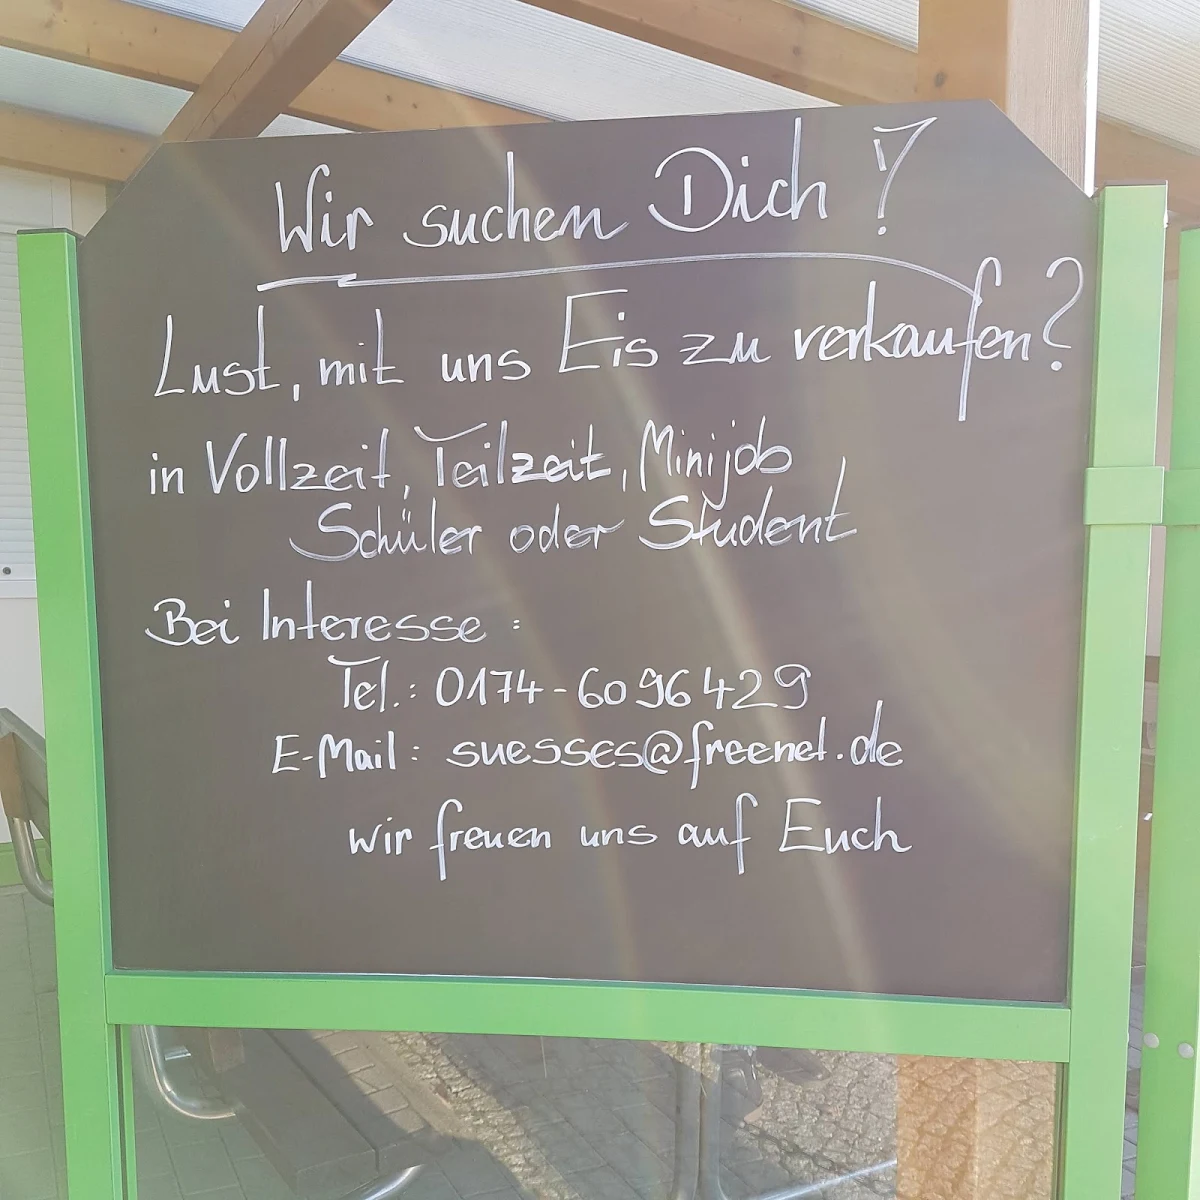 Wir suchen Dich!
Lust, mit uns Eis zu verkaufen?
in Vollzeit, Teilzeit, Minijob
Schüler oder Student
Bei Interesse:
Tel.: 0174-6096429
E-Mail: suesses@freenet.de
wir freuen uns auf Euch